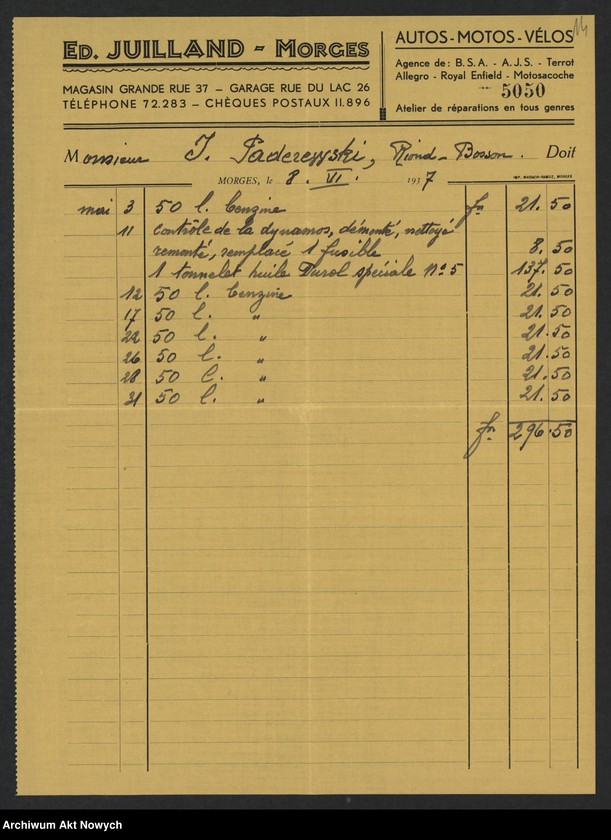 14
ED. JUILLAND - MORGES
MAGASIN GRANDE RUE 37 – GARAGE RUE DU LAC 26
TÉLÉPHONE 72.283 – CHÈQUES POSTAUX II.896
AUTOS - MOTOS - VÉLOS
Agence de: B.S.A. - A.J.S. - Terrot
Allegro - Royal Enfield - Motosacoche
5050
Atelier de réparations en tous genres
Monsieur J. Paderewski, Riond-Bosson. Doit
MORGES, le 8. VI. 1937
mai 3 50 l. benzine fr 21.50
11 Contrôle de la dynamos, démonté, nettoyé
remonté, remplacé 1 fusible 8.50
1 tonnelet huile Durol spéciale No 5 137.50
12 50 l. benzine 21.50
17 50 l. " 21.50
22 50 l. " 21.50
26 50 l. " 21.50
28 50 l. " 21.50
31 50 l. " 21.50
fr 296.50
Archiwum Akt Nowych